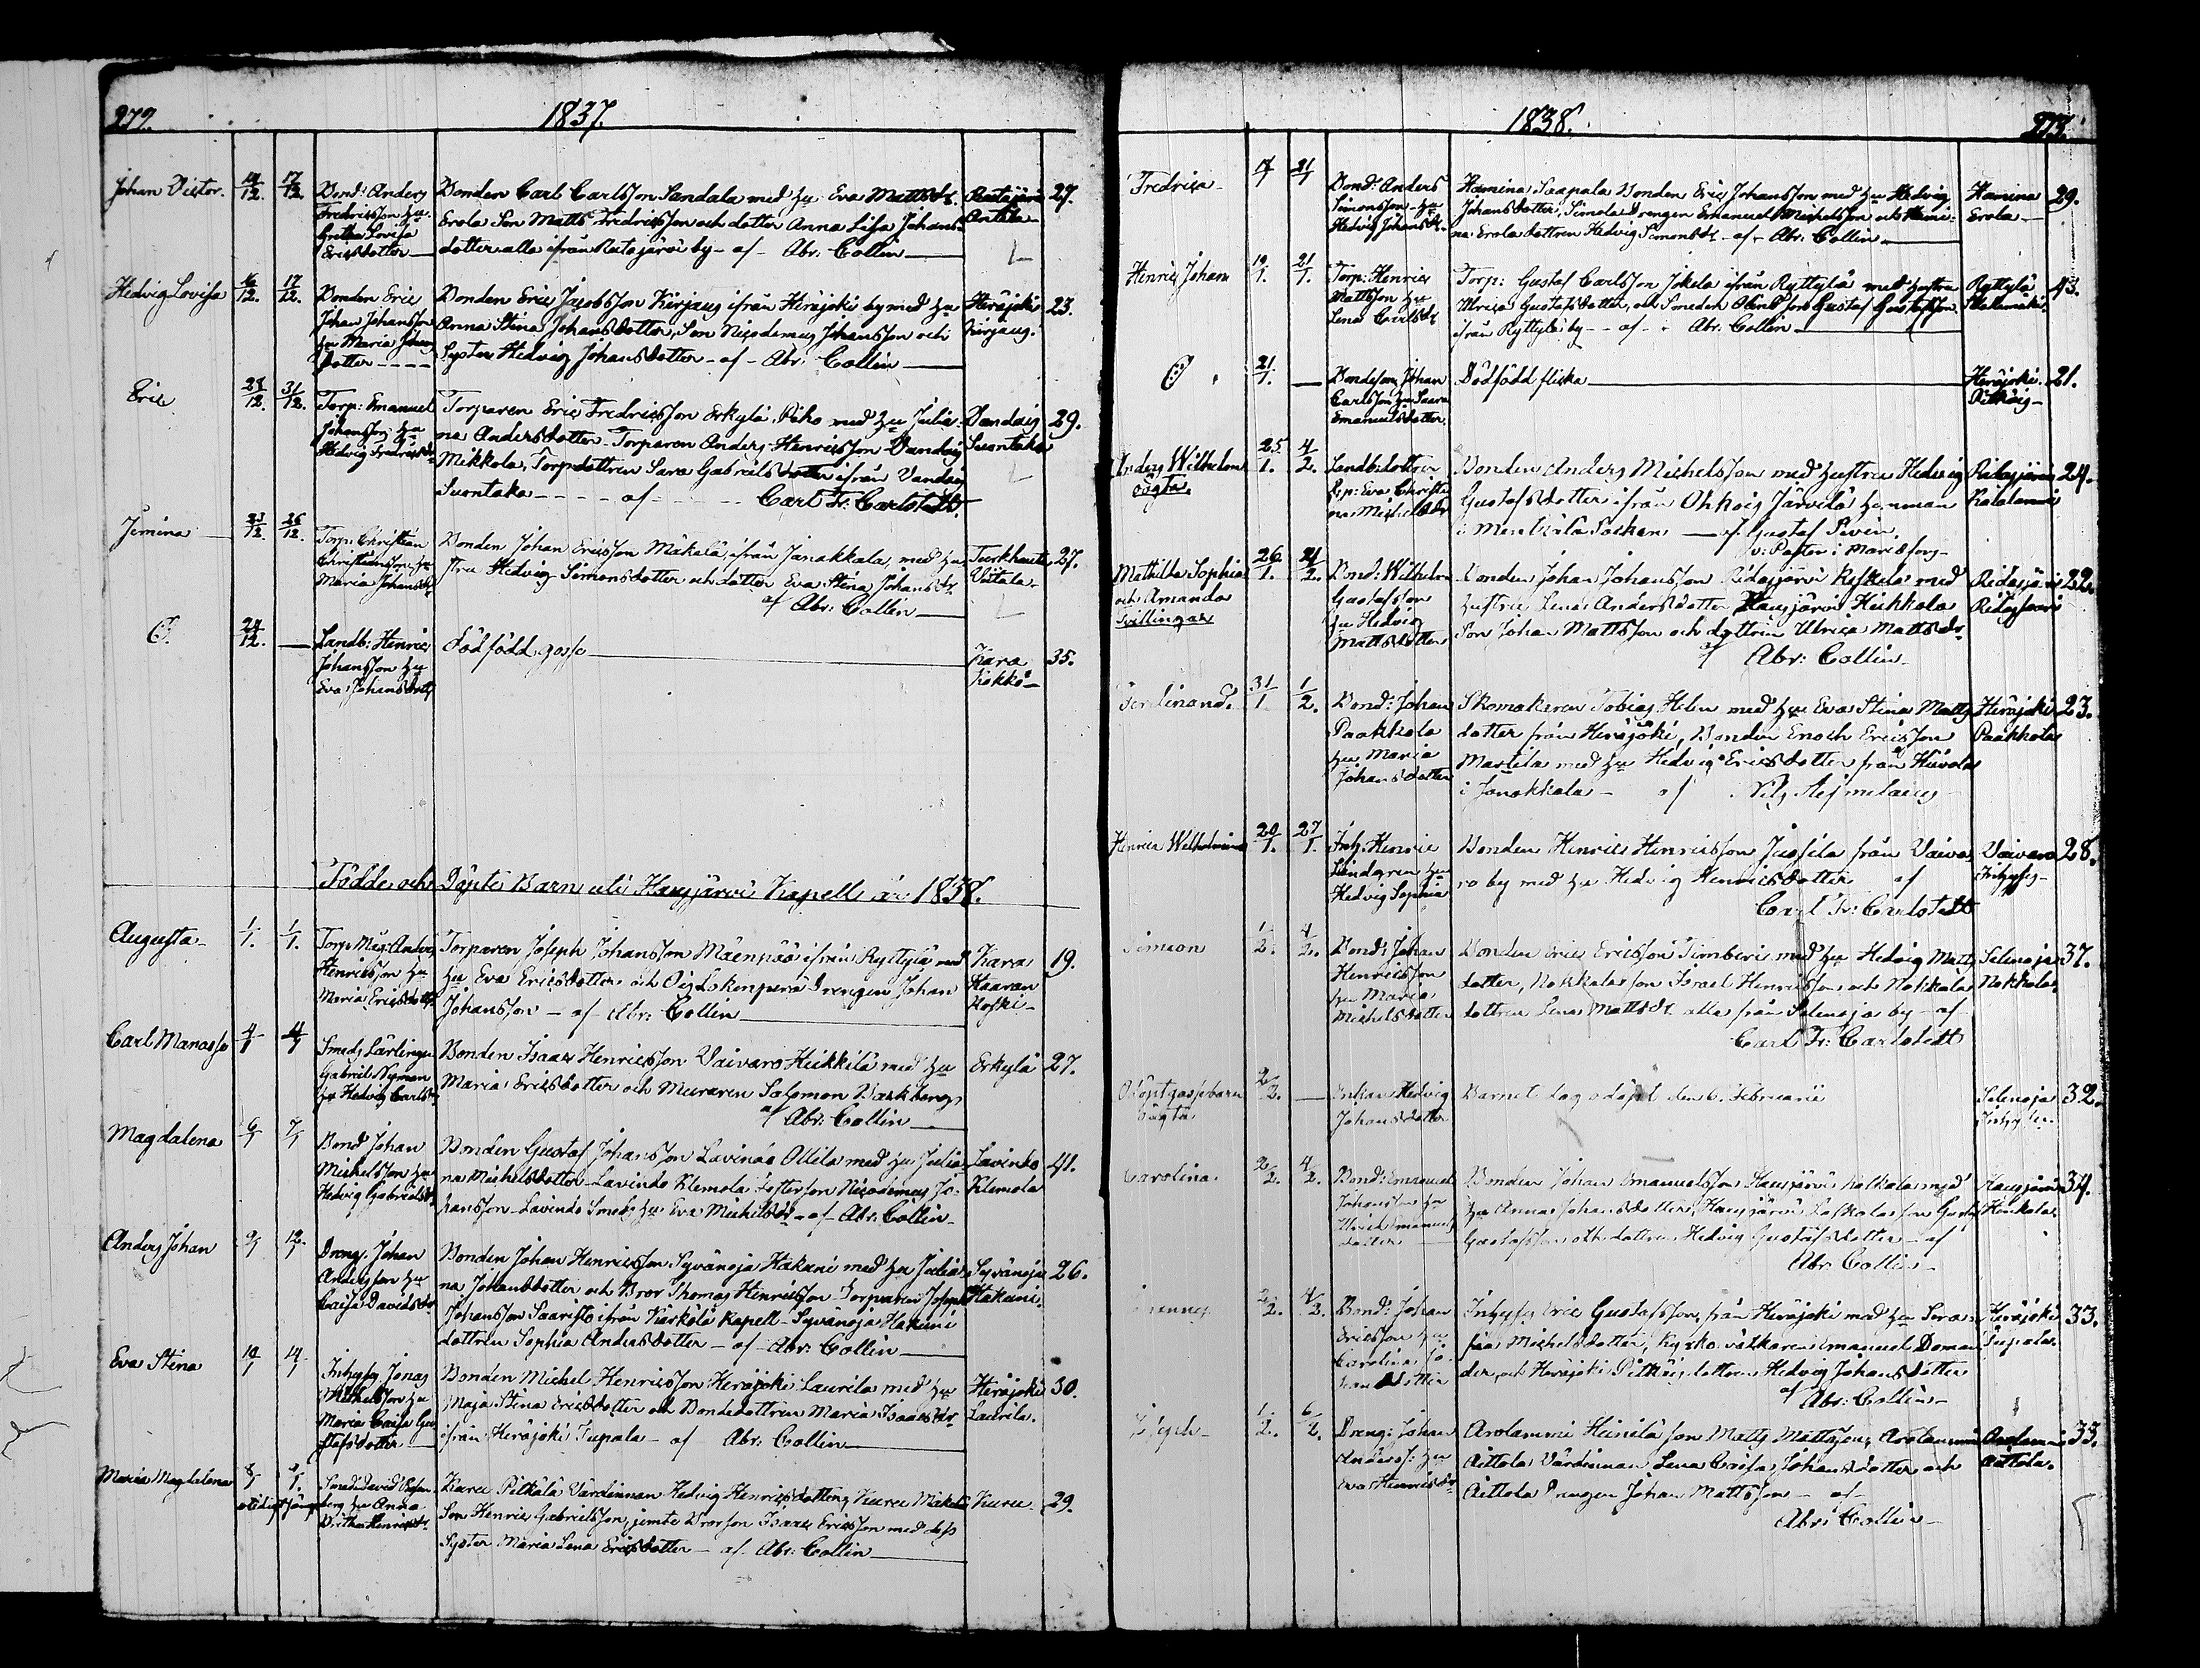 272.
1837.
Johan Victor. 14/12. 17/12.
Bond: Anders
Fredricsson hu
Gretha Lovisa
Ericsdotter
Bonden Carl Carlsson Sandala med hu Eva Mattsdr.
Erola Son Matts Fredricsson och dotter Anna Lisa Johans
dotter alla ifrån Ratasjärvi by - af - Abr. Collin
Ratasjärvi
Anttila
27.
Hedvig Lovisa 16/12. 17/12.
Bonden Eric
Johan Johansson
hu Maria Johans
dotter
Bonden Eric Jacobsson Kirjaus ifrån Herajoki by med hu
Anna Stina Johansdotter, Son Nicodemus Johansson och
Syster Hedvig Johansdotter - af - Abr: Collin
Herajoki
Kirjaus.
23.
Eric 28/12. 31/12.
Torp: Emanuel
Johansson hu
Hedvig Fredricsdr
Torparen Eric Fredricsson Erkylä Piko med hu Julia
na Andersdotter - Torparen Anders Henricsson Vandaig
Mikkola, Torpdottren Sara Gabrielsdotter ifrån Vandaig
Suontaka - af - Carl Fr: Carlstedt.
Vandaig
Suontaka
29.
Jemina 23/12. 26/12.
Torp: Christian
Christiansson hu
Maria Johansdr
Bonden Johan Ericsson Mäkelä ifrån Janakkala, med hu
stru Hedvig Simonsdotter och dotter Eva Stina Johansdr.
af Abr: Collin
Turkhauta
27.
O. 24/12.
Landb: Henric
Johansson hu
Eva Johansdott
Dödfödd gosse
Kara
Kokko
35.
Födde och Döpte Barn uti Hausjärvi Kapell år 1838.
Augusta 1/1. 1/1.
Torp: Måg: Anders
Henricsson hu
Maria Ericsdott
Torparen Joseph Johansson Mäenpää ifrån Ryttylä med
hu Eva Ericsdotter och drengen Johan
Johansson - af - Abr: Collin
Kara
Kaaran
Koski
19.
Carl Manasse 4/1 4/1
Smeds Lärlingen
Gabriel Nyman
hu Hedvig Carlsdr
Bonden Isaac Henricsson Vaivaro Heikkilä med hu
Maria Ericsdotter och Muraren Salomon Backberg
af Abr: Collin
Erkylä
27.
Magdalena 6/1 7/1
Bond Johan
Michelsson hu
Hedvig Gabrielsdr
Bonden Gustaf Johansson Lavindo Ollila med hu Julia
na Michelsdotter Lavindo Klemola dotterson Nicodemus Jo-
hansson - Lavindo Smeds hu Eva Michelsdr - af - Abr: Collin
Lavindo
Klemola
41.
Anders Johan 9/1 12/1
Dreng. Johan
Andersson hu
Caisa Davidsdr
Bonden Johan Henricsson Syvänoja Hakuni med hu Julia
na Johansdotter och Bror Thomas Henricsson - Torparen Joseph
Johansson Saaristo ifrån Kärkölä Kapell - Syvänoja Hakuni
dottren Sophia Andersdotter - af - Abr: Collin
Syvänoja
Hakuni.
26.
Eva Stina 10/1 14/1
Inhyses Jonas
Michelsson hu
Maria Caisa Gu
stafsdotter
Bonden Michel Henricsson Herajoki Laurila med hu
Maja Stina Ericsdotter och Bondedottren Maria Isaacsdr
ifrån Herajoki Tupala - af Abr: Collin
Herajoki
Laurila.
30.
Maria Magdalena
Smed David
berg hu Anna
Kuru Pitkälä Värdinnan Hedvig Henricsdotter, Kuru
Son Henric Gabrielsson, jemte Brorson Isaac Ericsson med dess
Syster Maria Lena Ericsdotter - af - Abr: Collin
Kuru
29.
1838.
273.
Fredrica 21/1
Bond: Anders
Simonsson hu
Hedvig Johansdr
Hamina Saapala Bonden Eric Johansson med hu Hedvig
Johansdotter, Simola Drengen Emanuel Michelsson och Hami-
na Erola dottren Hedvig Simonsdr - af - Abr: Collin
Hamina
Erola
29.
Henric Johan 19/1. 21/1.
Torp: Henric
Mattsson hu
Lena Carlsdr
Torp: Gustaf Carlsson Jokela ifrån Ryttylä med hustru
Ulrica Gustafsdotter, och Smeden Gustaf Gustafsson
ifrån Ryttylä by - af - Abr: Collin
Ryttylä
43.
O. 21/1.
Bondeson Johan
Carlsson hu Saara
Emanuelsdotter
Dödfödd flicka
Herajoki
Pitkäig
21.
Anders Wilhelm 25/1. 4/2.
oägta.
Landb:dottren
Pig: Eva Christi
na Michelsdr
Bonden Anders Michelsson med hustru Hedvig
Gustafsdotter ifrån Ohkoig Järvelä hemman
i Mäntsälä Socken - af Gustaf Sivén.
v: Pastor i
Ridasjärvi
Kalalammi
24.
Mathilda Sophia 26/1. 4/2.
och Amanda
Tvillingar
Bond: Wilhelm
Gustafsson
hu Hedvig
Mattsdotter
Bonden Johan Johansson Ridasjärvi med
hustru Lena Andersdotter Hausjärvi Heikkola
Son Johan Mattsson och dottren Ulrica Mattsdr
af Abr: Collin
Ridasjärvi
22.
Ferdinand. 31/1 1/2.
Bond: Johan
Paakkola
hu Maria
Johansdotter
Skomakaren Tobias Helen med hu Eva Stina Matts
dotter från Herajoki, Bonden Enoch Ericsson
Marttila med hu Hedvig Ericsdotter från
i Janakkala - af Nils
Herajoki
Paakkola
23.
Henrica Wilhelmina 20/1. 27/1.
Inh: Henric
Lindgren hu
Hedvig Sophia
Bonden Henric Henricsson Jussila från Vaiva
ro by med hu Hedvig Henricsdotter af
Carl Fr: Carlstedt
Vaivaro
Inhyses
28.
Simeon 1/2. 4/2.
Bond: Johan
Henricsson
hu Maria
Michelsdotter
Bonden Eric Ericsson Timberi med hu Hedvig Matts
dotter, Nokkala son Israel Henricsson och Nokkala
dottren Lena Mattsdr. alla från Selenoja by - af
Carl Fr: Carlstedt
Selenoja
Nokkala.
37.
Odöpt gossebarn 2/2.
oägta
Enkan Hedvig
Johansdotter
Barnet dog odöpt den 6. Februarii
Selenoja
32.
Carolina. 2/2. 4/2.
Bond: Emanuel
Johansson hu
Ulrica Emanuels
dotter
Bonden Johan Emanuelsson Hausjärvi med
hu Anna Johansdotter, Hausjärvi son Gustaf
Gustafsson och dottren Hedvig Gustafsdotter - af
Abr. Collin
Hausjärvi
34.
2/2. 4/2.
Bond: Johan
Ericsson hu
Carolina Jo
hansdotter
Inhyses Eric Gustafsson, från Herajoki med hu Sera
fia Michelsdotter, Kyrkovaktaren Emanuel Doman
der, och Herajoki Pitkäig dottren Hedvig Johansdotter
af Abr: Collin
Herajoki
Tupala.
33.
1/2. 6/2.
Dreng: Johan
Anderss: hu
Eva Henricsdr
Arolammi Heinilä son Matts Mattsson, Arolammi
Aittola Värdinnan Lena Caisa Johansdotter och
Aittola Drengen Johan Mattsson - af -
Abr: Collin
Arolammi
Aittola.
33.